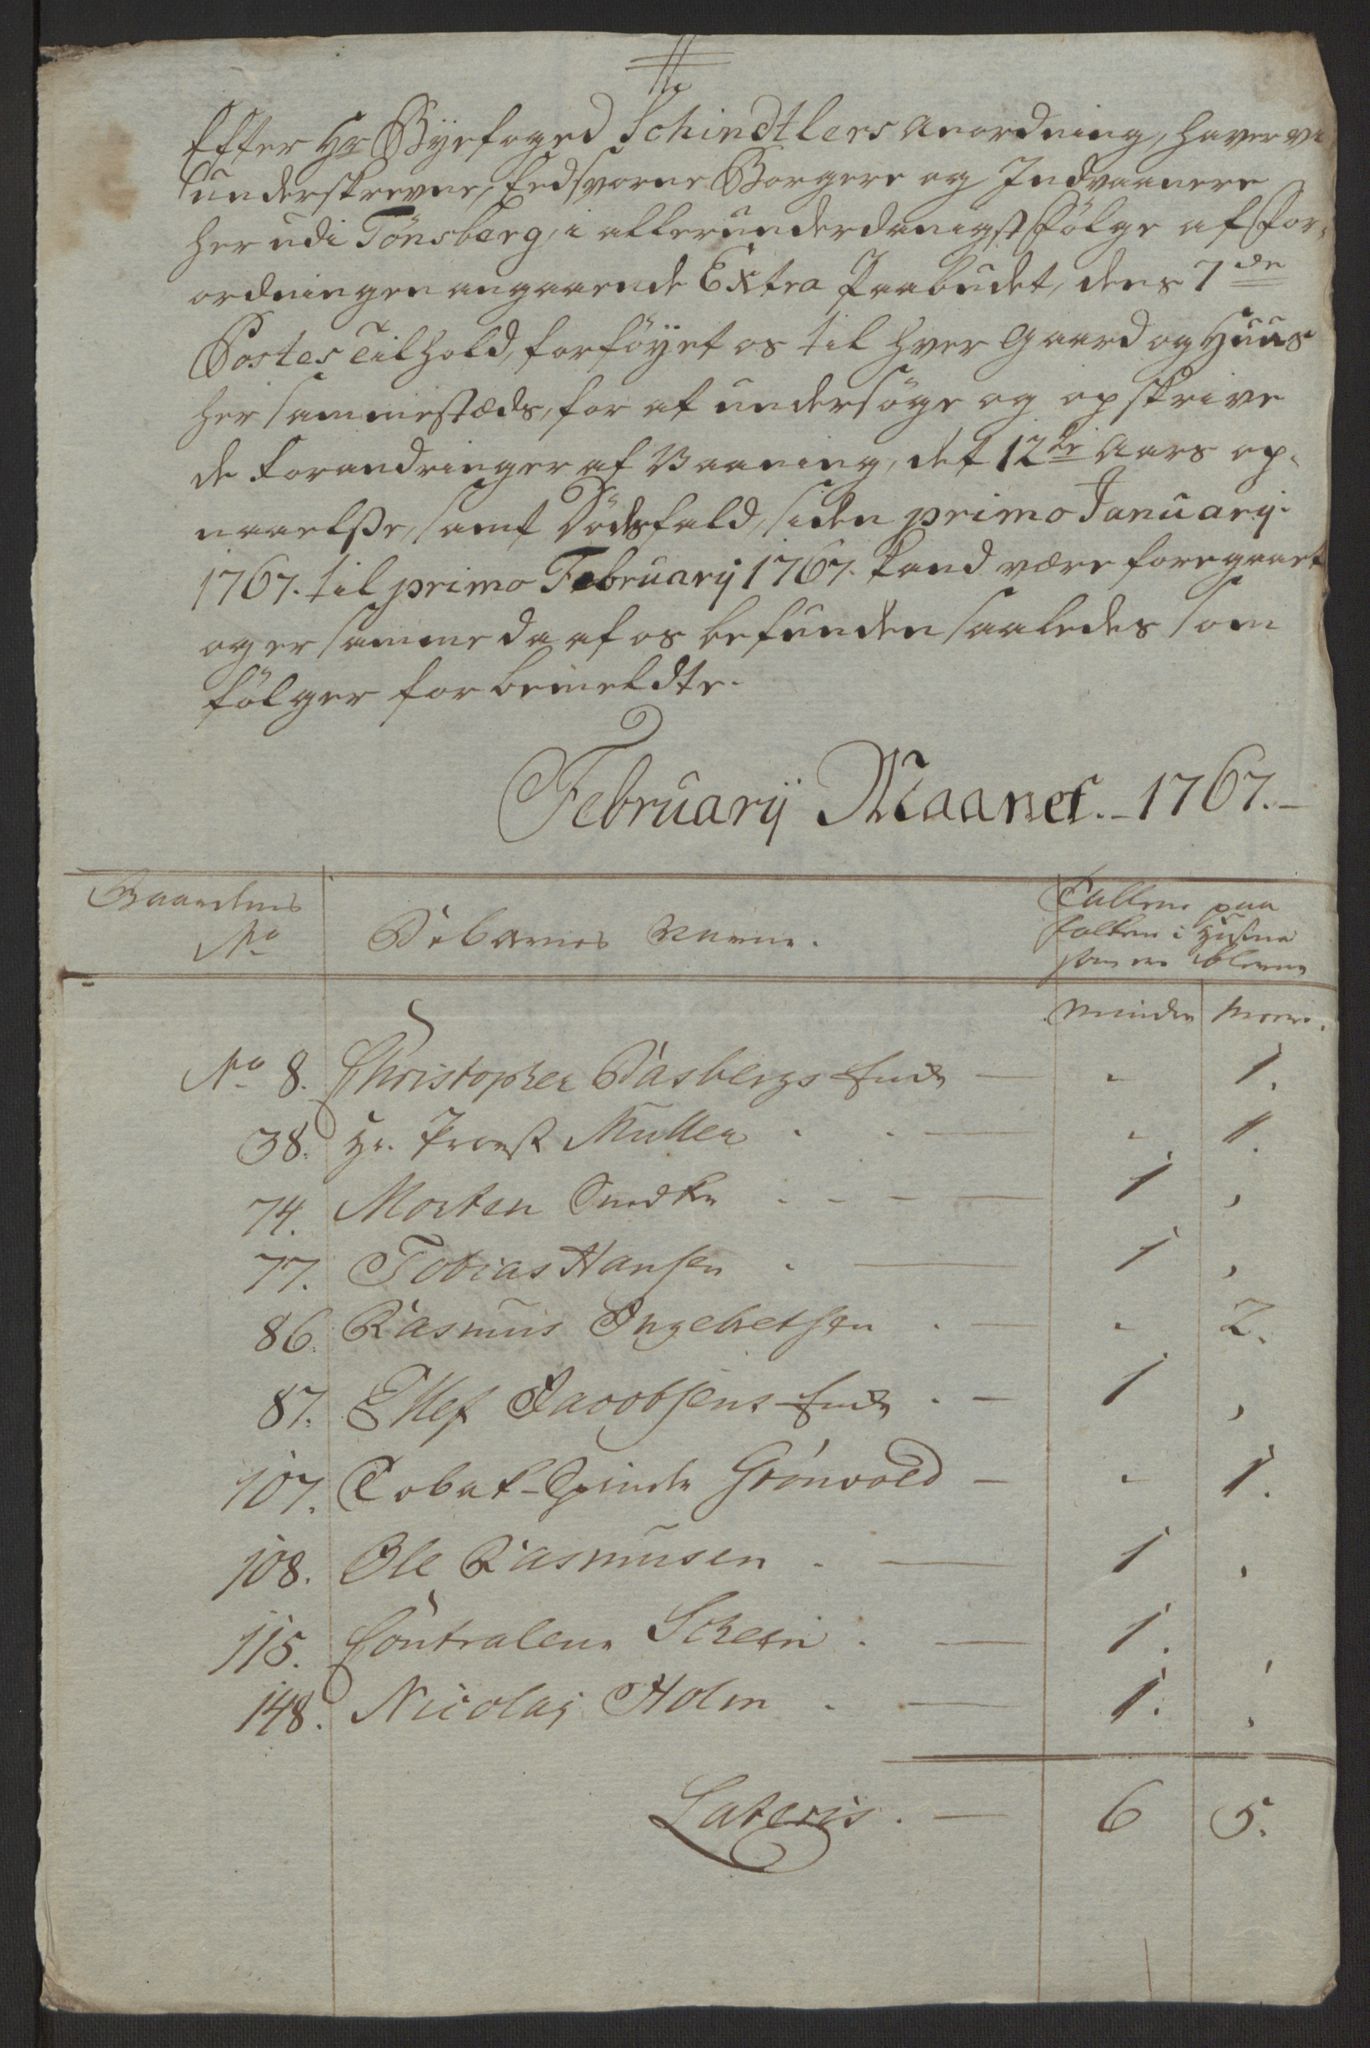 Efter Hr Byefoged Schindtlers Anordning, haver vi
underskrevne, Eedsvorne Borgere og Indvaanere
her udi Tönsberg, i allerunderdanigst fölge af for-
ordningen angaaende Extra Paabudet, dens 7de
Postes Tilhold, forföyet os til hver Gaard og Huus
her sammestæds, for at undersöge og opskrive
de Forandringer af Vaaning, det 12te Aars op-
naaelsse, samt Dödsfald, siden primo Januarij
1767. til primo Februarij 1767. kand være foregaaet
og er samme da af os befunden saaledes som
fölger for bemeldte.
Februarij Maanet. 1767.
Gaardenes No
Beboernes Navne.
Tallene paa
Folken i Husene
som ere blevne
mindre meere.
No 8. Christopher Dasbergs Enke 1.
38. Hr. Provst Muller 1.
74. Morten Snedker 1
77. Tobias Hansen 1
86. Rasmus Ingebretsen 2.
87. Ellef Jacobsens Enke 1
107. Tobak-Spinder Grönvold 1.
108. Ole Rasmusen 1
115. Controleur 1.
148. Nicolaj Holm 1.
Lateris. 6 5.